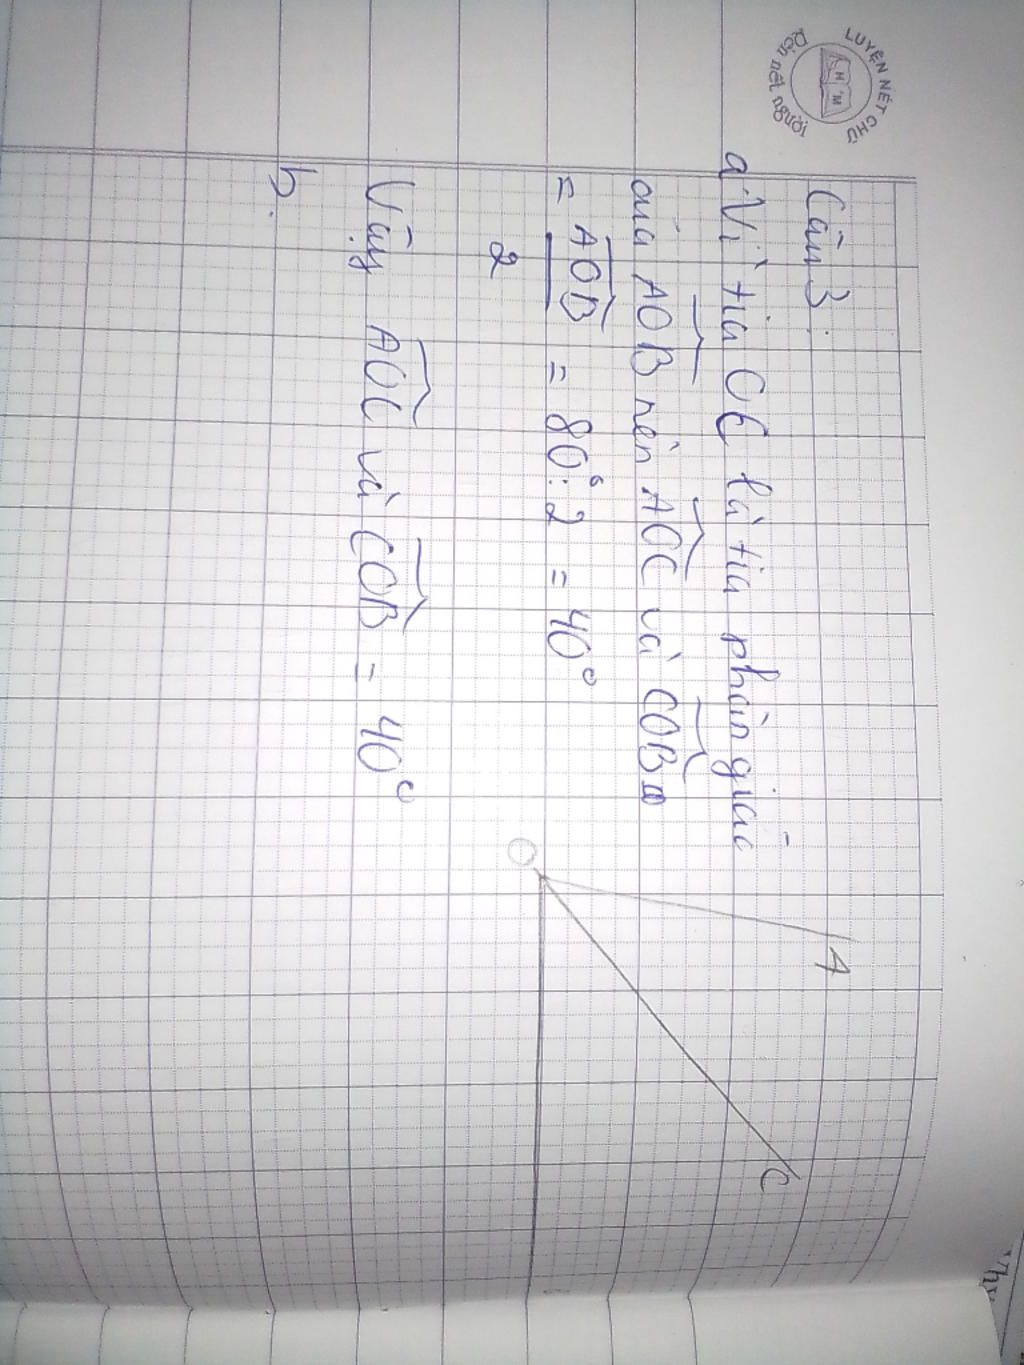 LUYỆN NÉT CHỮ
Rèn nết người
H M
Câu 3:
a. Vì tia OC là tia phân giác
của AOB nên AOC và COB
= AOB = 80° : 2 = 40°
2
Vậy AOC và COB = 40°
b.
A
C
O